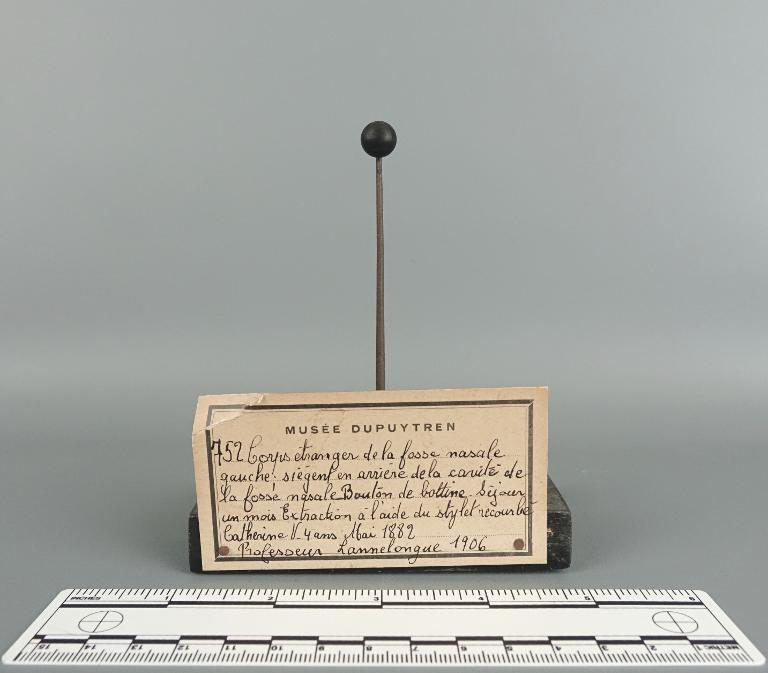 MUSÉE DUPUYTREN
752 Corps étranger de la fosse nasale
gauche. siégent en arrière de la cavité de
la fosse nasale Bouton de bottine. Séjour
un mois Extraction à l'aide du stylet recourbé
Catherine V. 4 ans Mai 1882
Professeur Lannelongue 1906
INCHES 1 2 3 4 5 6
15 14 13 12 11 10 9 8 7 6 5 4 3 2 1 METRIC